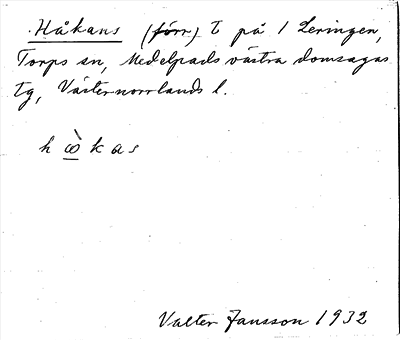 Håkans (förr) t på 1 Leringen,
Torps sn, Medelpads västra domsagas
tg, Västernorrlands l.
h ὼ k a s
Valter Jansson 1932